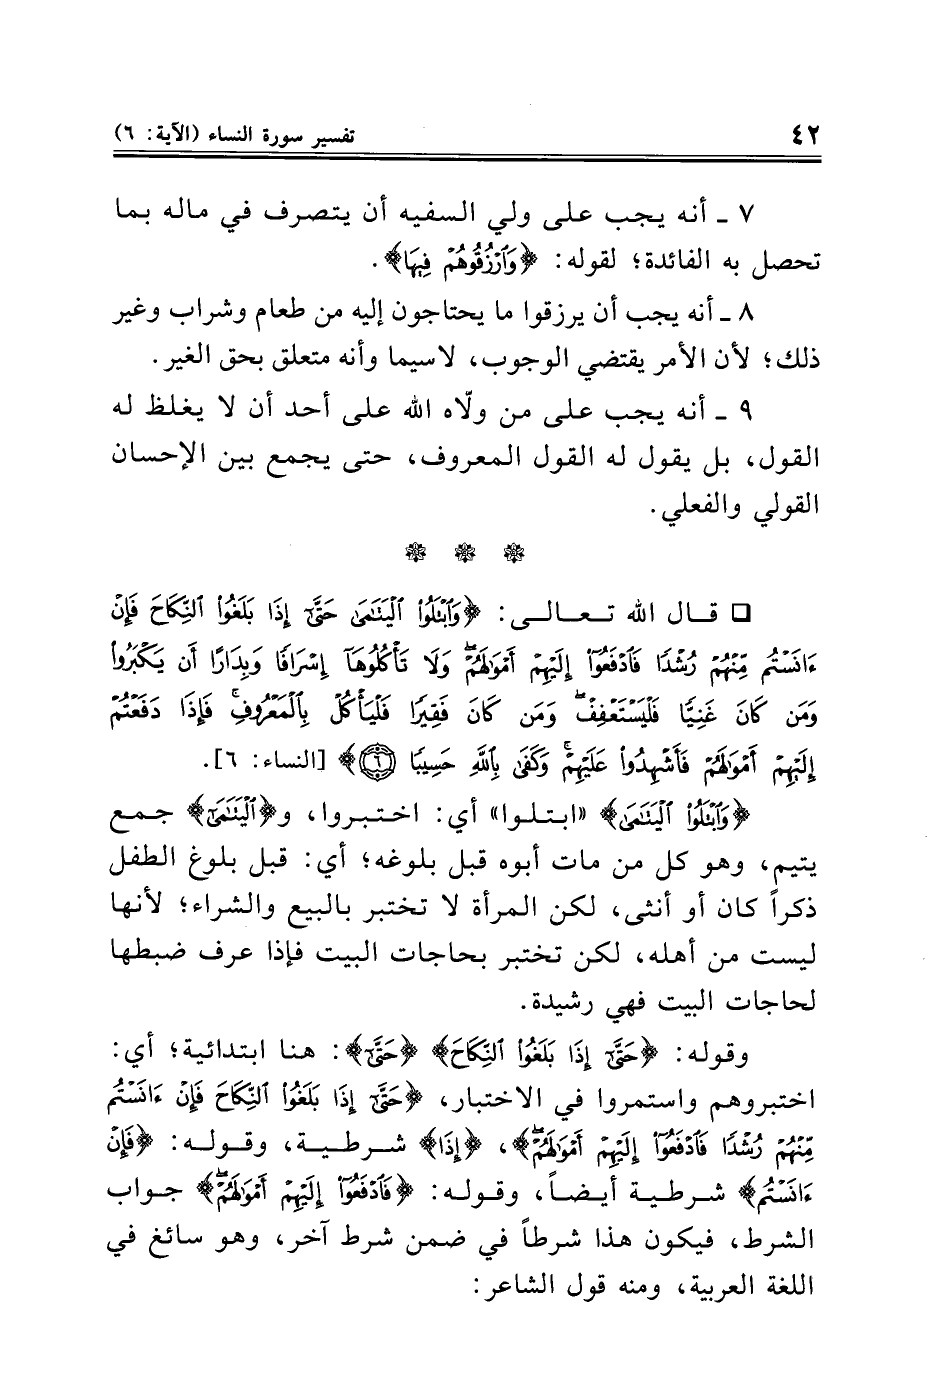 ٤٢ تفسير سورة النساء (الآية: ٦)
٧ ـ أنه يجب على ولي السفيه أن يتصرف في ماله بما
تحصل به الفائدة؛ لقوله: ﴿وَٱرْزُقُوهُمْ فِيهَا﴾.
٨ ـ أنه يجب أن يرزقوا ما يحتاجون إليه من طعام وشراب وغير
ذلك؛ لأن الأمر يقتضي الوجوب، لاسيما وأنه متعلق بحق الغير.
٩ ـ أنه يجب على من ولّاه الله على أحد أن لا يغلظ له
القول، بل يقول له القول المعروف، حتى يجمع بين الإحسان
القولي والفعلي.
❁ ❁ ❁
□ قال الله تعالى: ﴿وَٱبْتَلُوا۟ ٱلْيَتَـٰمَىٰ حَتَّىٰٓ إِذَا بَلَغُوا۟ ٱلنِّكَاحَ فَإِنْ
ءَانَسْتُم مِّنْهُمْ رُشْدًا فَٱدْفَعُوٓا۟ إِلَيْهِمْ أَمْوَٰلَهُمْ ۖ وَلَا تَأْكُلُوهَآ إِسْرَافًا وَبِدَارًا أَن يَكْبَرُوا۟
وَمَن كَانَ غَنِيًّا فَلْيَسْتَعْفِفْ ۖ وَمَن كَانَ فَقِيرًا فَلْيَأْكُلْ بِٱلْمَعْرُوفِ ۚ فَإِذَا دَفَعْتُمْ
إِلَيْهِمْ أَمْوَٰلَهُمْ فَأَشْهِدُوا۟ عَلَيْهِمْ ۚ وَكَفَىٰ بِٱللَّهِ حَسِيبًا ٦﴾ [النساء: ٦].
﴿وَٱبْتَلُوا۟ ٱلْيَتَـٰمَىٰ﴾ «ابتلوا» أي: اختبروا، و﴿ٱلْيَتَـٰمَىٰ﴾ جمع
يتيم، وهو كل من مات أبوه قبل بلوغه؛ أي: قبل بلوغ الطفل
ذكراً كان أو أنثى، لكن المرأة لا تختبر بالبيع والشراء؛ لأنها
ليست من أهله، لكن تختبر بحاجات البيت فإذا عرف ضبطها
لحاجات البيت فهي رشيدة.
وقوله: ﴿حَتَّىٰٓ إِذَا بَلَغُوا۟ ٱلنِّكَاحَ﴾ ﴿حَتَّىٰٓ﴾: هنا ابتدائية؛ أي:
اختبروهم واستمروا في الاختبار، ﴿حَتَّىٰٓ إِذَا بَلَغُوا۟ ٱلنِّكَاحَ فَإِنْ ءَانَسْتُم
مِّنْهُمْ رُشْدًا فَٱدْفَعُوٓا۟ إِلَيْهِمْ أَمْوَٰلَهُمْ ۖ﴾، ﴿إِذَا﴾ شرطية، وقوله: ﴿فَإِنْ
ءَانَسْتُم﴾ شرطية أيضاً، وقوله: ﴿فَٱدْفَعُوٓا۟ إِلَيْهِمْ أَمْوَٰلَهُمْ ۖ﴾ جواب
الشرط، فيكون هذا شرطاً في ضمن شرط آخر، وهو سائغ في
اللغة العربية، ومنه قول الشاعر: